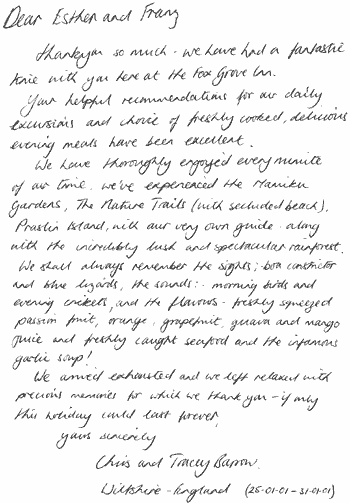 Dear Esther and Franz
Thankyou so much - we have had a fantastic
time with you here at the Fox Grove Inn.
Your helpful recommendations for our daily
excursions and choice of freshly cooked, delicious
evening meals have been excellent.
We have thoroughly enjoyed every minute
of our time. we've experienced the Mamiku
Gardens, The Nature Trails (with secluded beach),
Praslin Island, with our very own guide - along
with the incredibly lush and spectacular rainforest.
We shall always remember the sights; boa constrictor
and blue lizards, the sounds: - morning birds and
evening crickets, and the flavours - freshly squeezed
passion fruit, orange, grapefruit, guava and mango
juice and freshly caught seafood and the infamous
garlic soup!
We arrived exhausted and we left relaxed with
precious memories for which we thank you - if only
this holiday could last forever,
yours sincerely
Chris and Tracey Barron.
Wiltshire - England (25-01-01 - 31-01-01)